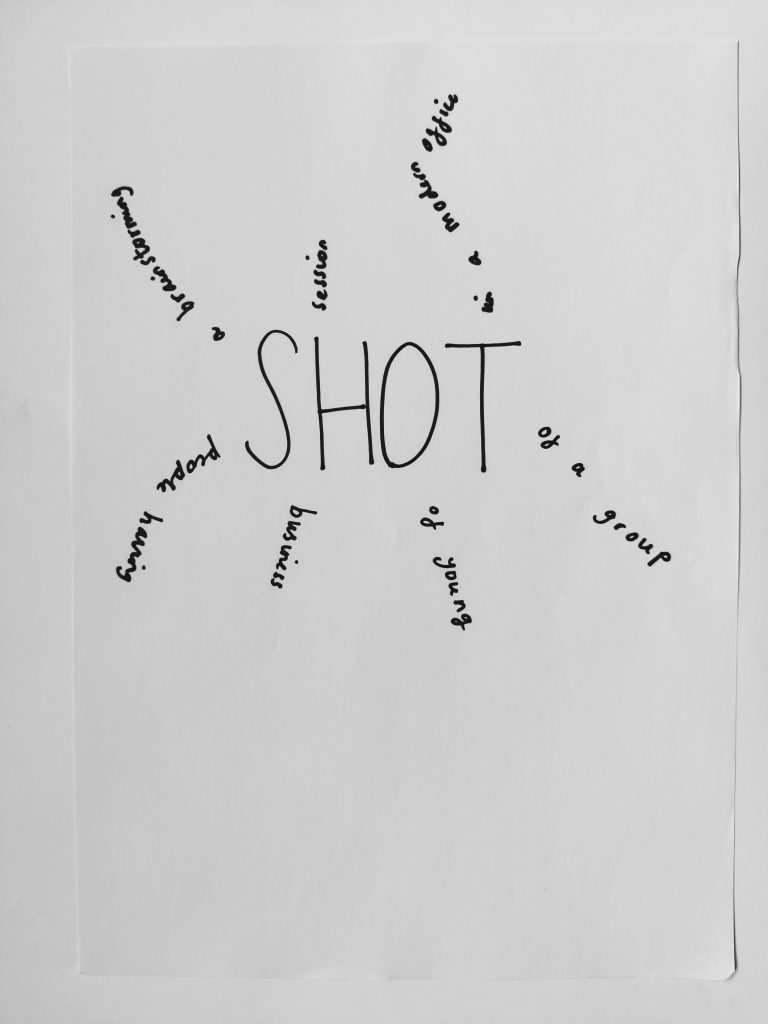 SHOT
of a group
of young
business
people having
a brainstorming
session
in a modern offic